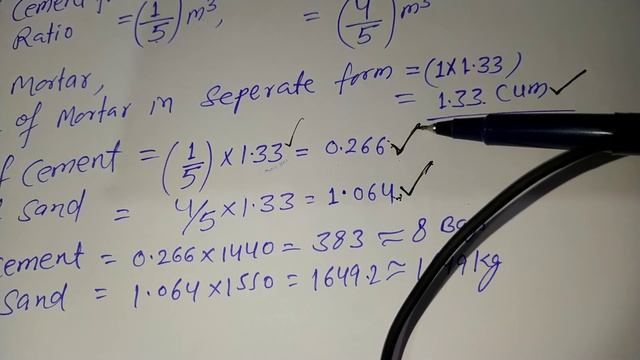 Cement
Ratio = (1/5) m³, = (4/5) m³
Mortar,
of Mortar in seperate form = (1×1.33)
= 1.33 Cum
f Cement = (1/5) ×1.33 = 0.266
Sand = 4/5 ×1.33 = 1.064
ement = 0.266×1440 = 383 ≈ 8
Sand = 1.064×1550 = 1649.2 ≈ kg